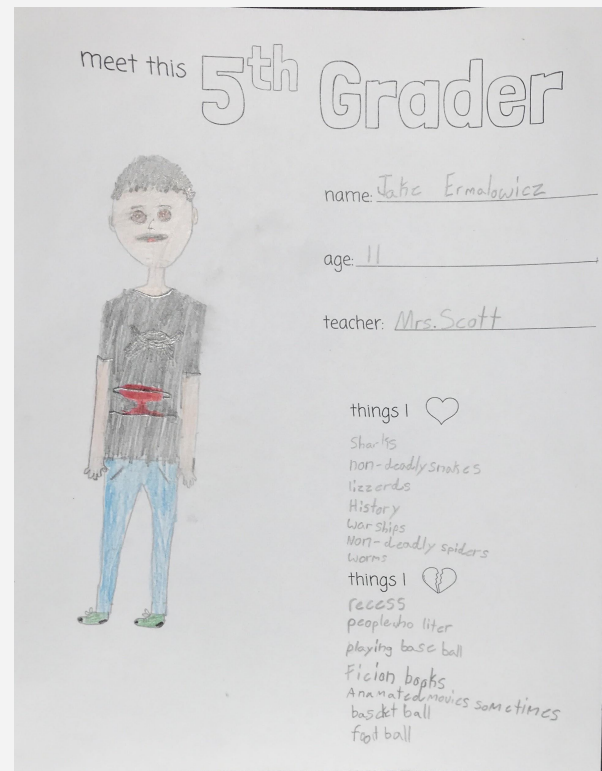 meet this 5th Grader
name: Jake Ermalowicz
age: 11
teacher: Mrs. Scott
things I
Sharks
non-deadly snakes
lizzerds
History
War ships
Non-deadly spiders
worms
things I
recess
people who liter
playing base ball
Ficion books
Anamated movies sometimes
basckt ball
food ball